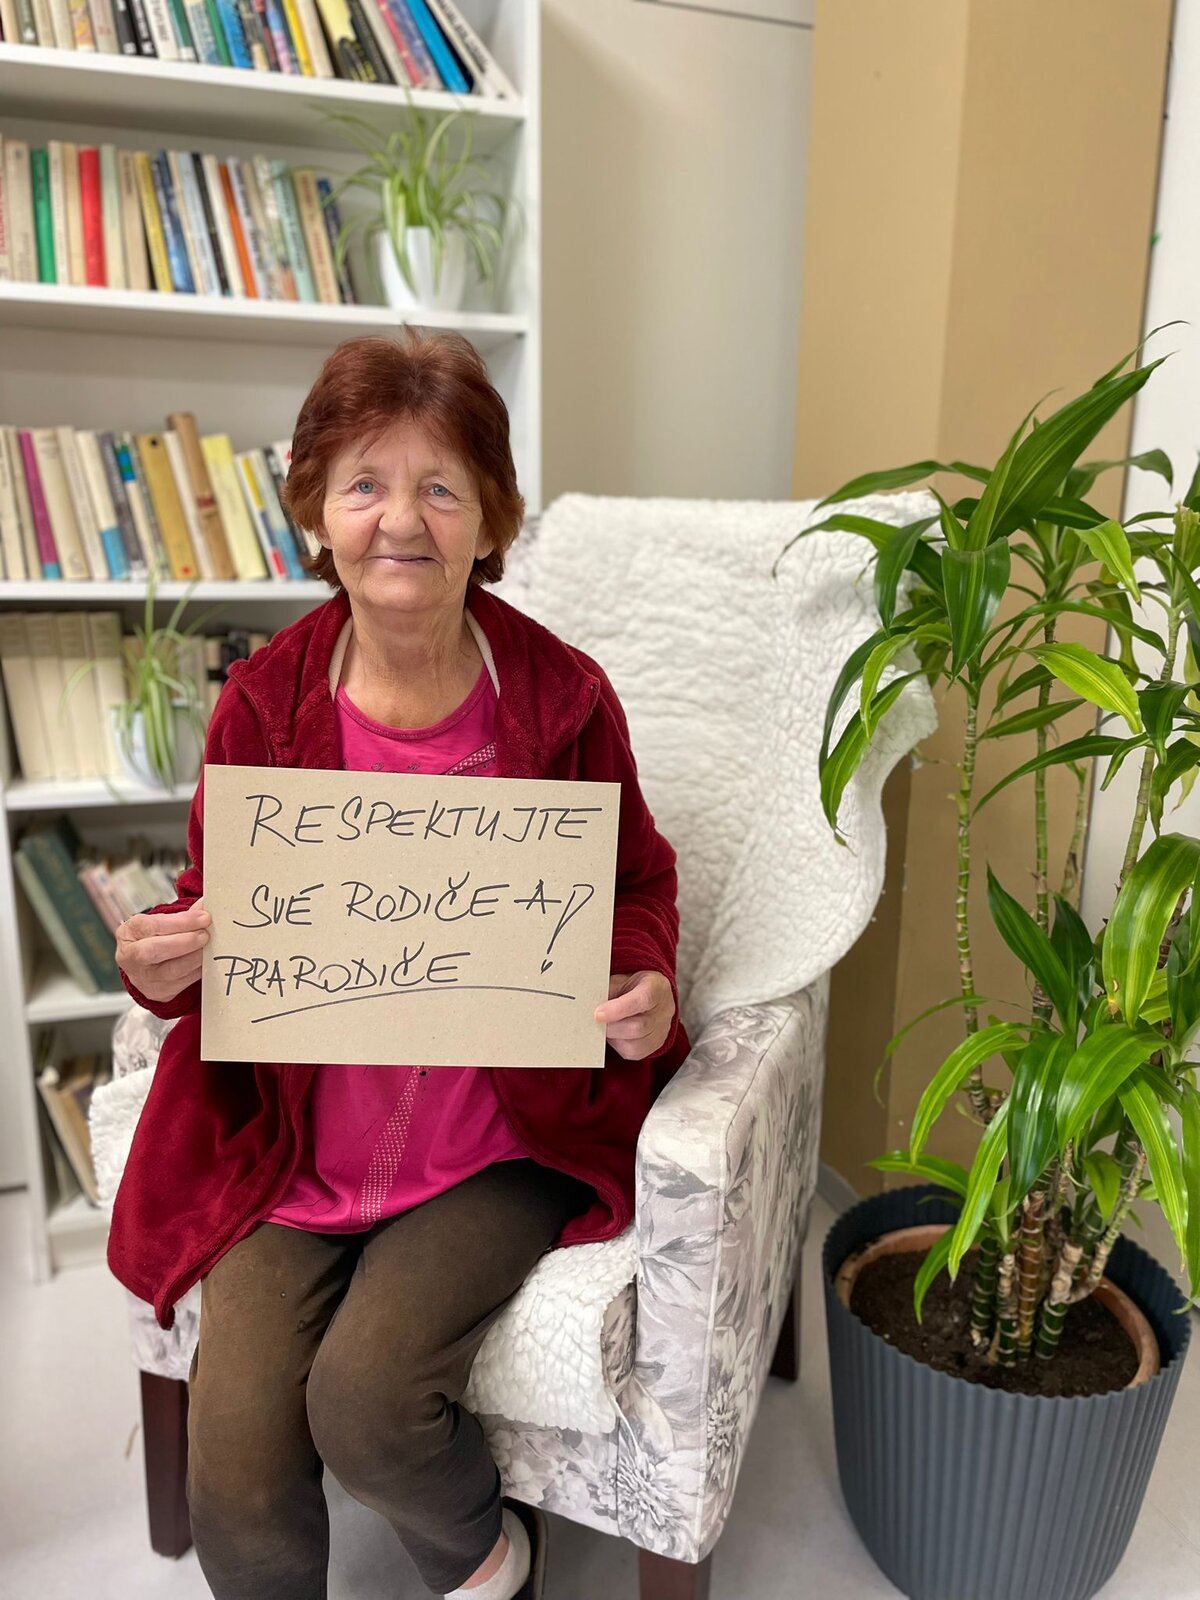 RESPEKTUJTE
SVÉ RODIČE A
PRARODIČE !